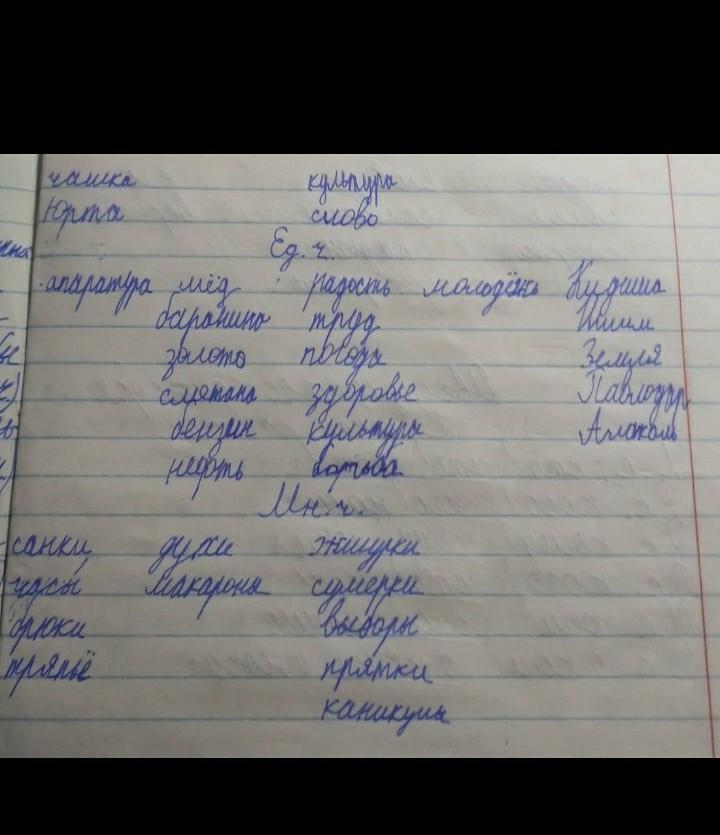 чашка культура
Юрта слово
Ед. ч.
апаратура мёд радость молодёжь
баранина труд Ишим
золото погода Земля
сметана здоровье Павлодар
бензин культура Алаколь
нефть борьба
Мн. ч.
санки духи жмурки
макароны сумерки
брюки выборы
тряпьё прятки
каникулы